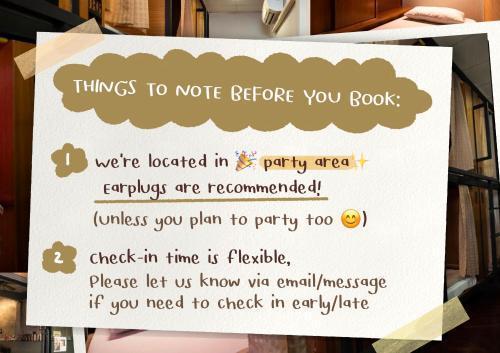 THINGS TO NOTE BEFORE YOU BOOK:
1 we're located in 🎉 party area ✨
Earplugs are recommended!
(unless you plan to party too 😊)
2 check-in time is flexible,
Please let us know via email/message
if you need to check in early/late